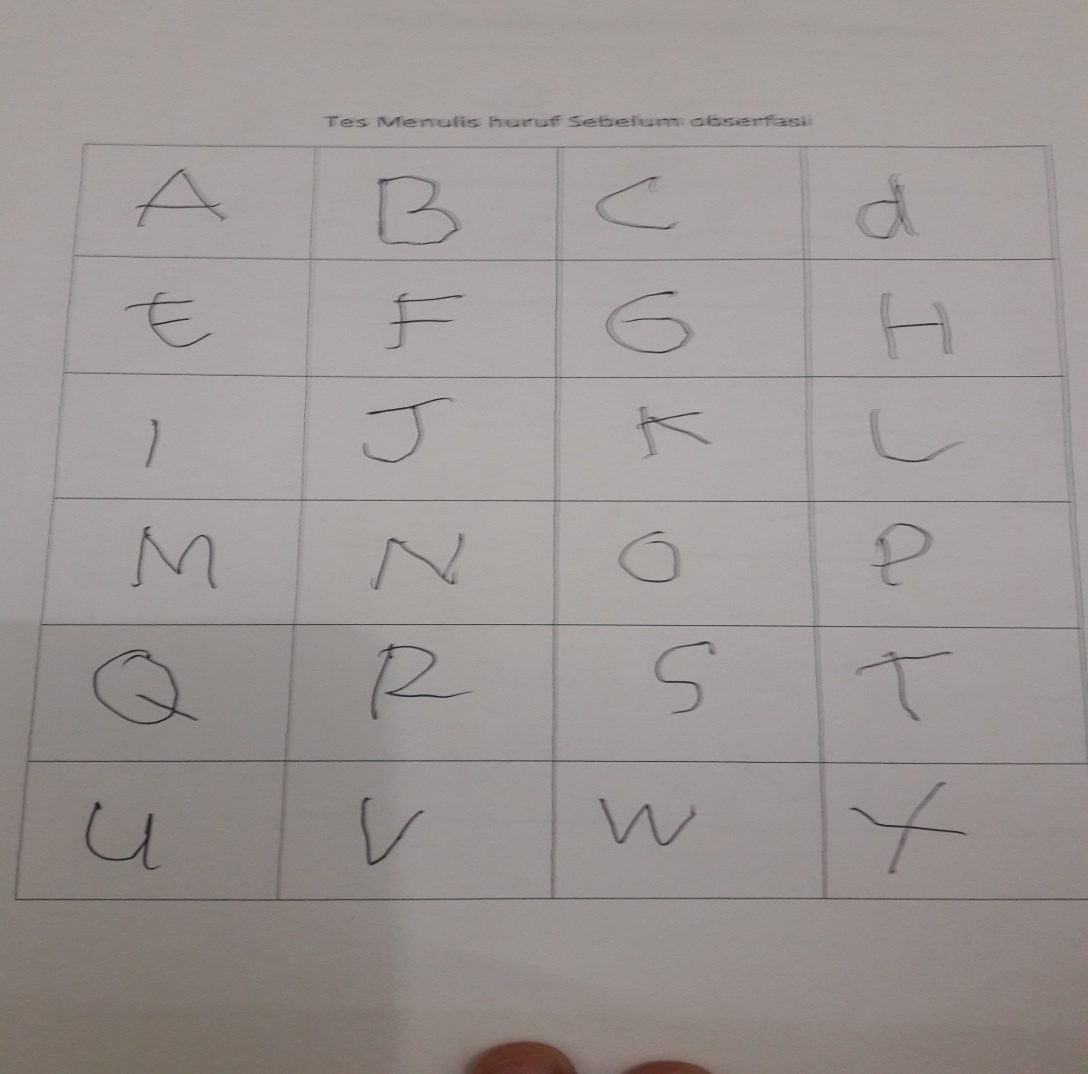 Tes Menulis huruf Sebelum obserfasi
A B C d
E F G H
I J K L
M N O P
Q R S T
U V W X